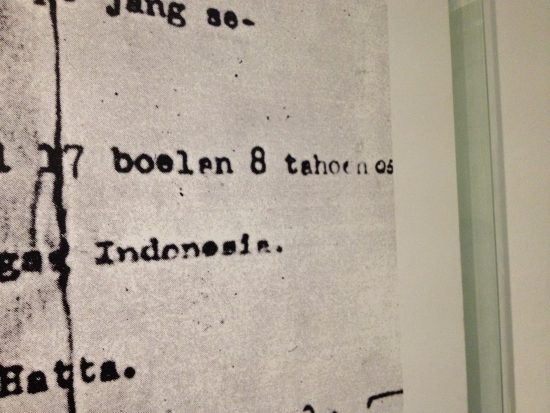 jang se-
17 boelan 8 tahoen 05
Indonesia.
Hatta.